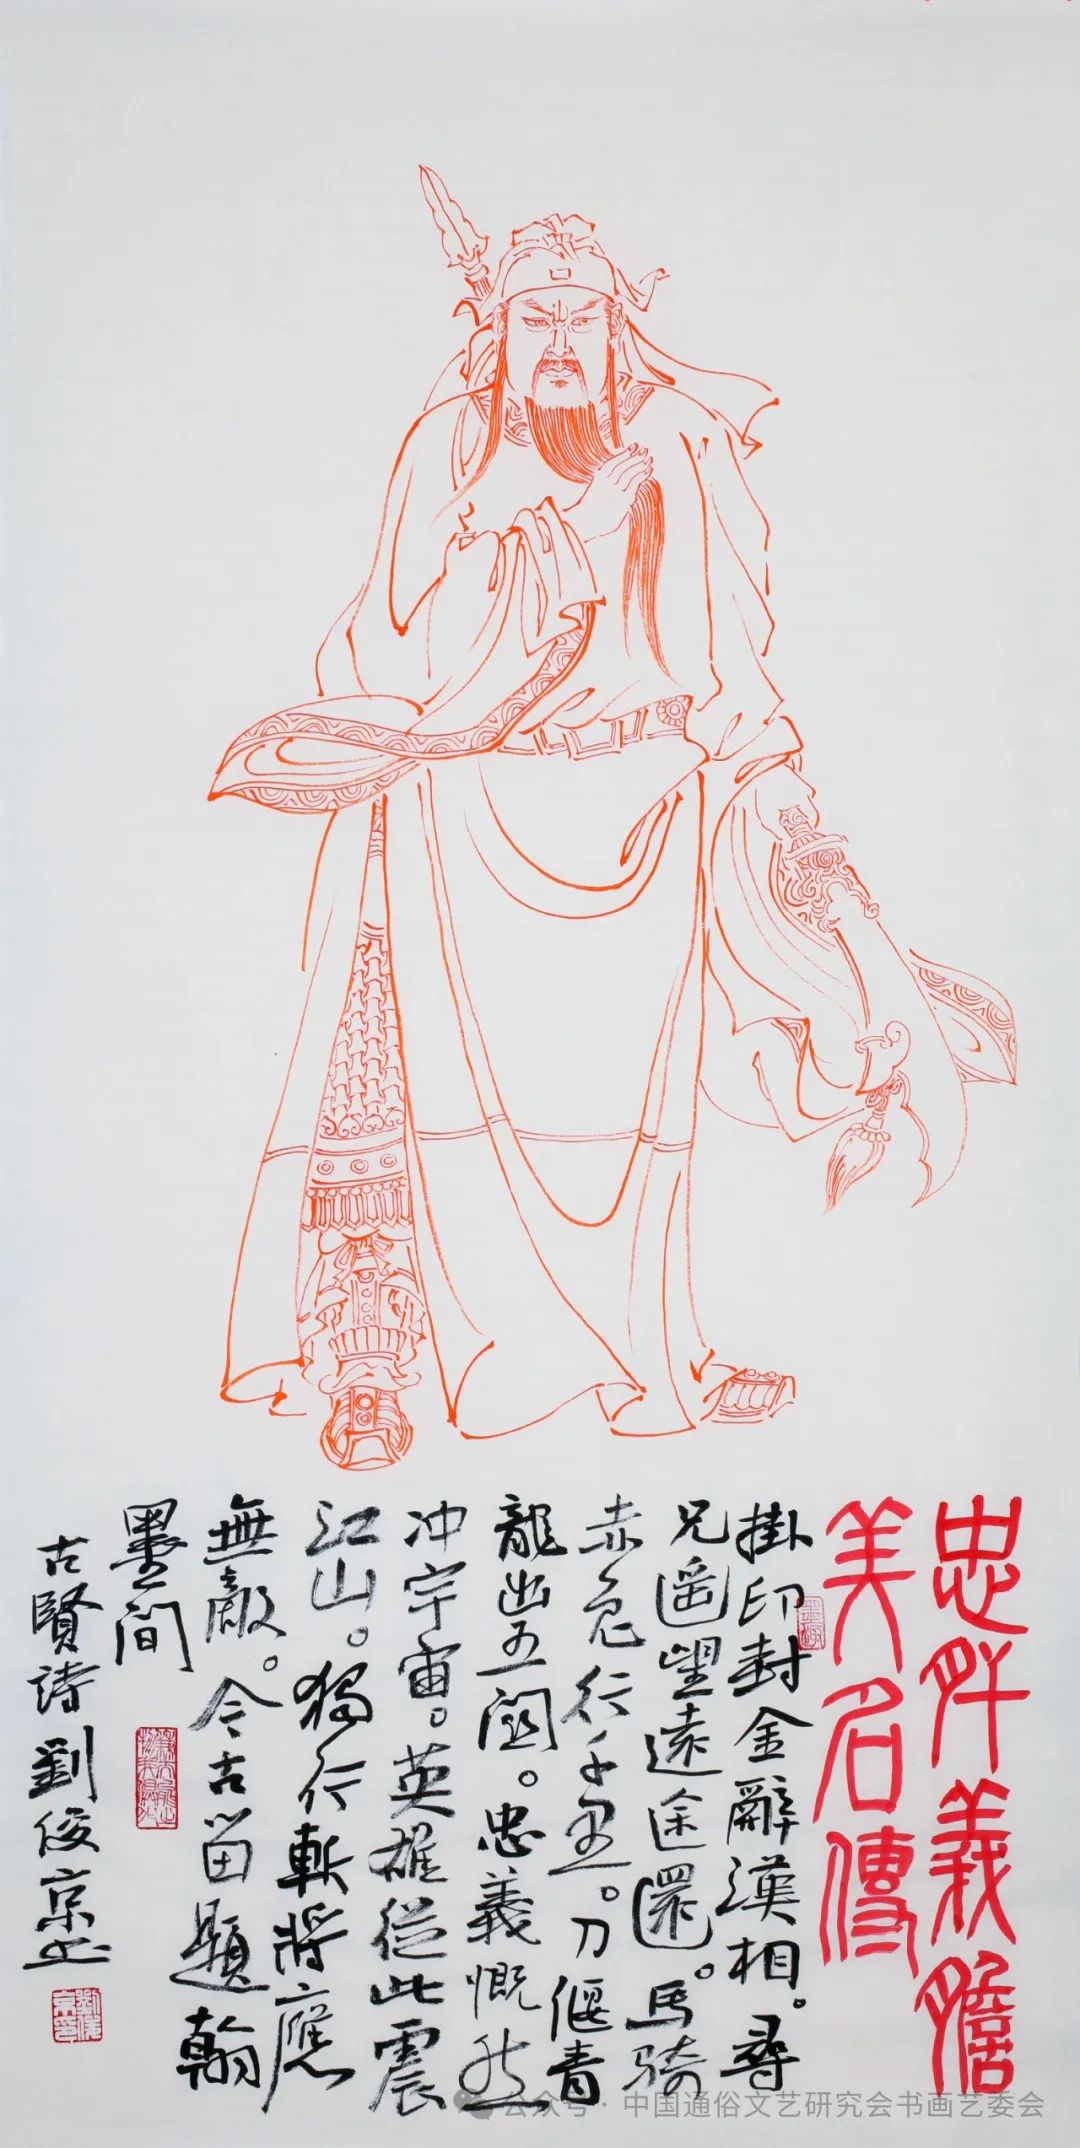 忠肝義膽
美名傳
掛印封金辭漢相。尋
兄遥望遠途還。馬騎
赤兔行千里。刀偃青
龍出五關。忠義慨然
冲宇宙。英雄從此震
江山。獨行斬將應
無敵。今古留題翰
墨間
古賢詩劉俊京书
公众号 · 中国通俗文艺研究会书画艺委会